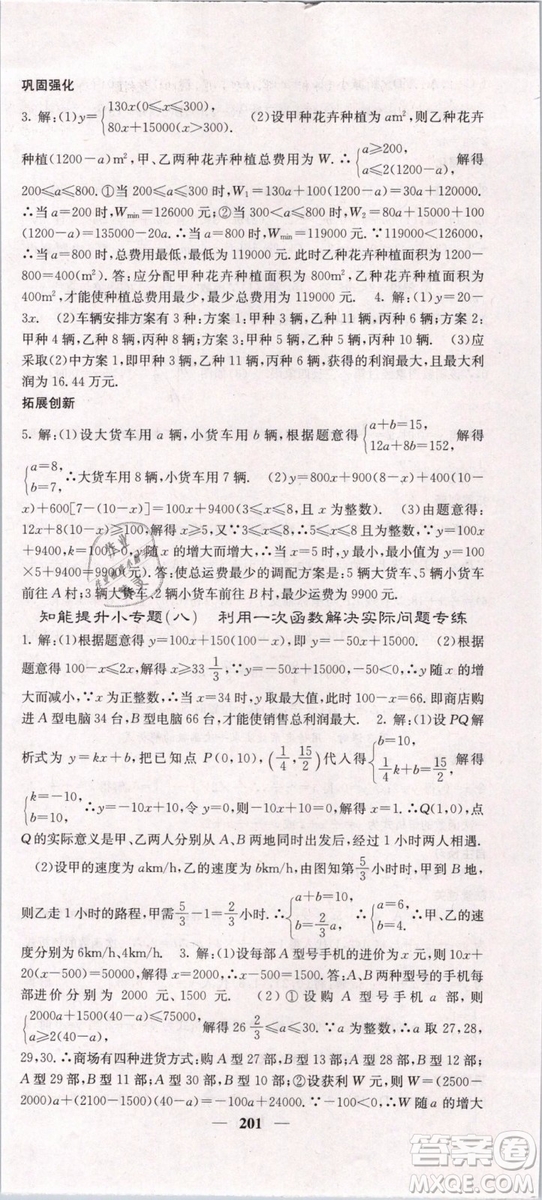 巩固强化
3. 解:(1)y={130x(0≤x≤300), 80x+15000(x>300). (2)设甲种花卉种植为 am²,则乙种花卉
种植(1200-a)m²,甲、乙两种花卉种植总费用为 W. ∴{a≥200, a≤2(1200-a), 解得
200≤a≤800. ①当 200≤a≤300 时,W₁=130a+100(1200-a)=30a+120000.
∴当 a=200 时,Wmin=126000 元;②当 300<a≤800 时,W₂=80a+15000+100
(1200-a)=135000-20a. ∴当 a=800 时,Wmin=119000 元. ∵119000<126000,
∴当 a=800 时,总费用最少,最少为 119000 元. 此时乙种花卉种植面积为 1200-
800=400(m²). 答:应分配甲种花卉种植面积为 800m²,乙种花卉种植面积为
400m²,才能使种植总费用最少,最少总费用为 119000 元. 4. 解:(1)y=20-
3x. (2)车辆安排方案有 3 种:方案 1:甲种 3 辆,乙种 11 辆,丙种 6 辆;方案 2:
甲种 4 辆,乙种 8 辆,丙种 8 辆;方案 3:甲种 5 辆,乙种 5 辆,丙种 10 辆. (3)应
采取(2)中方案一,即甲种 3 辆,乙种 11 辆,丙种 6 辆,获得的利润最大,且最大利
润为 16.44 万元.
拓展创新
5. 解:(1)设大货车用 a 辆,小货车用 b 辆,根据题意得{a+b=15, 12a+8b=152, 解得
{a=8, b=7, ∴大货车用 8 辆,小货车用 7 辆. (2)y=800x+900(8-x)+400(10-
x)+600[7-(10-x)]=100x+9400(3≤x≤8,且 x 为整数). (3)由题意得:
12x+8(10-x)≥100,解得 x≥5,又∵3≤x≤8,∴5≤x≤8 且为整数,∵y=100x
+9400,k=100>0,y 随 x 的增大而增大,∴当 x=5 时,y 最小,最小值为 y=100
×5+9400=9900(元). 答:使总运费最少的调配方案是:5 辆大货车、5 辆小货车
前往 A 村;3 辆大货车、2 辆小货车前往 B 村. 最少运费为 9900 元.
知能提升小专题(八) 利用一次函数解决实际问题专练
1. 解:(1)根据题意得 y=100x+150(100-x),即 y=-50x+15000. (2)根据
题意得 100-x≤2x,解得 x≥33 1/3,∵y=-50x+15000,-50<0,∴y 随 x 的增
大而减小,∵x 为正整数,∴当 x=34 时,y 取最大值,此时 100-x=66,即商店购
进 A 型电脑 34 台,B 型电脑 66 台,才能使销售总利润最大. 2. 解:(1)设 PQ 解
析式为 y=kx+b,把已知点 P(0,10),(1/4,15/2)代入得{b=10, 1/4k+b=15/2, 解得
{k=-10, b=10, ∴y=-10x+10,令 y=0,则-10x+10=0,解得 x=1. ∴Q(1,0),点
Q 的实际意义是甲、乙两人分别从 A、B 两地同时出发后,经过 1 小时两人相遇.
(2)设甲的速度为 akm/h,乙的速度为 bkm/h,由已知第 5/3 小时时,甲到 B 地,
则乙走 1 小时的路程,甲需 5/3-1=2/3小时. ∴{a+b=10, b=2/3a, ∴{a=6, b=4, ∴甲、乙的速
度分别为 6km/h、4km/h. 3. 解:(1)设每部 A 型号手机的进价为 x 元,则 10x+
20(x-500)=50000,解得 x=2000,∴x-500=1500. 答:A、B 两种型号的手机每部
进价分别为 2000 元、1500 元. (2)①设购进 A 型号手机 a 部,则
{2000a+1500(40-a)≤75000, a≥2(40-a), 解得 26 2/3≤a≤30. ∵a 为整数,∴a 取 27,28,
29,30. ∴商场有四种进货方式:购 A 型 27 部,B 型 13 部;A 型 28 部,B 型 12
部;A 型 29 部,B 型 11 部;A 型 30 部,B 型 10 部. ②设获利 W 元,则 W=(2500-
2000)a+(2100-1500)(40-a)=-100a+24000. ∵-100<0,∴W 随 a 的增大
201
答案圈